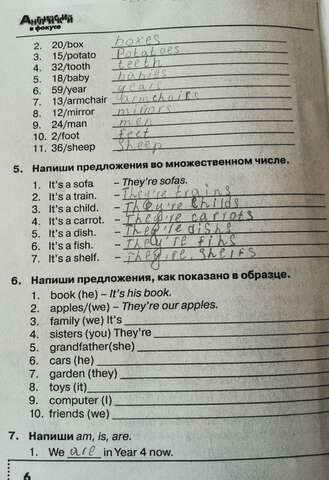 Английский
в фокусе
2. 20/box boxes
3. 15/potato Potatoes
4. 32/tooth teeth
5. 18/baby babies
6. 59/year years
7. 13/armchair armchairs
8. 12/mirror mirrors
9. 24/man men
10. 2/foot feet
11. 36/sheep Sheep
5. Напиши предложения во множественном числе.
1. It's a sofa – They're sofas.
2. It's a train. – They're trains
3. It's a child. – They're childs
4. It's a carrot. – They're carrots
5. It's a dish. – They're dishs
6. It's a fish. – They're
7. It's a shelf. – They're shelfs
6. Напиши предложения, как показано в образце.
1. book (he) – It's his book.
2. apples/(we) – They're our apples.
3. family (we) It's
4. sisters (you) They're
5. grandfather(she)
6. cars (he)
7. garden (they)
8. toys (it)
9. computer (I)
10. friends (we)
7. Напиши am, is, are.
1. We are in Year 4 now.
6